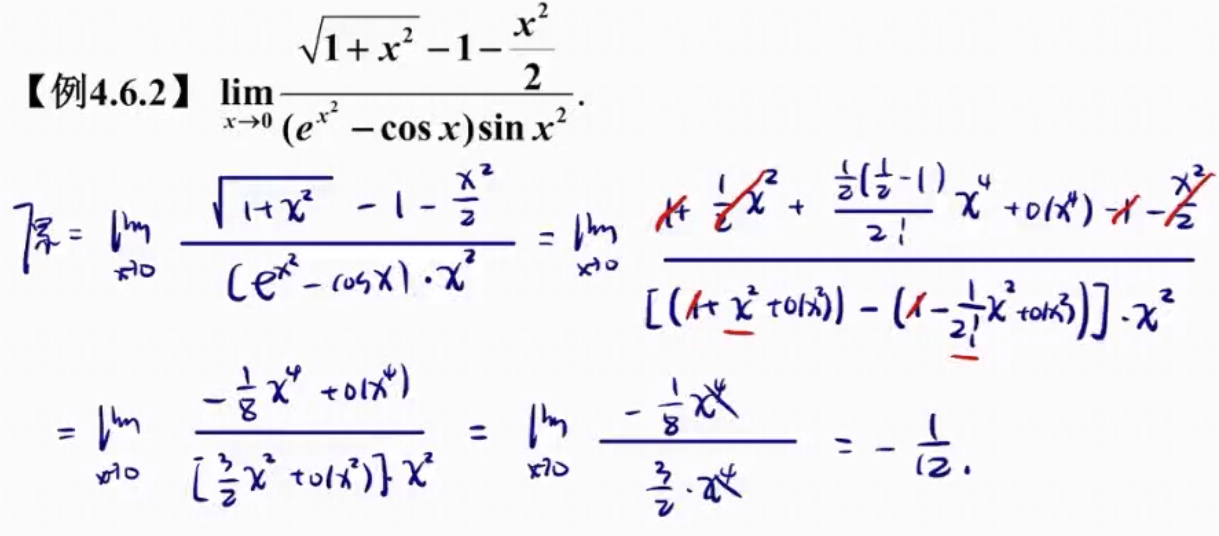 【例4.6.2】 $\lim\limits_{x\to 0}\dfrac{\sqrt{1+x^2}-1-\dfrac{x^2}{2}}{(e^{x^2}-\cos x)\sin x^2}$.
原 = $\lim\limits_{x\to 0}\dfrac{\sqrt{1+x^2}-1-\dfrac{x^2}{2}}{(e^{x^2}-\cos x)\cdot x^2}$ = $\lim\limits_{x\to 0}\dfrac{1+\dfrac{1}{2}x^2+\dfrac{\frac{1}{2}(\frac{1}{2}-1)}{2!}x^4+o(x^4)-1-\dfrac{x^2}{2}}{[(1+x^2+o(x^2))-(1-\dfrac{1}{2!}x^2+o(x^2))]\cdot x^2}$
= $\lim\limits_{x\to 0}\dfrac{-\dfrac{1}{8}x^4+o(x^4)}{[\dfrac{3}{2}x^2+o(x^2)]\cdot x^2}$ = $\lim\limits_{x\to 0}\dfrac{-\dfrac{1}{8}x^4}{\dfrac{3}{2}\cdot x^4}$ = $-\dfrac{1}{12}$.